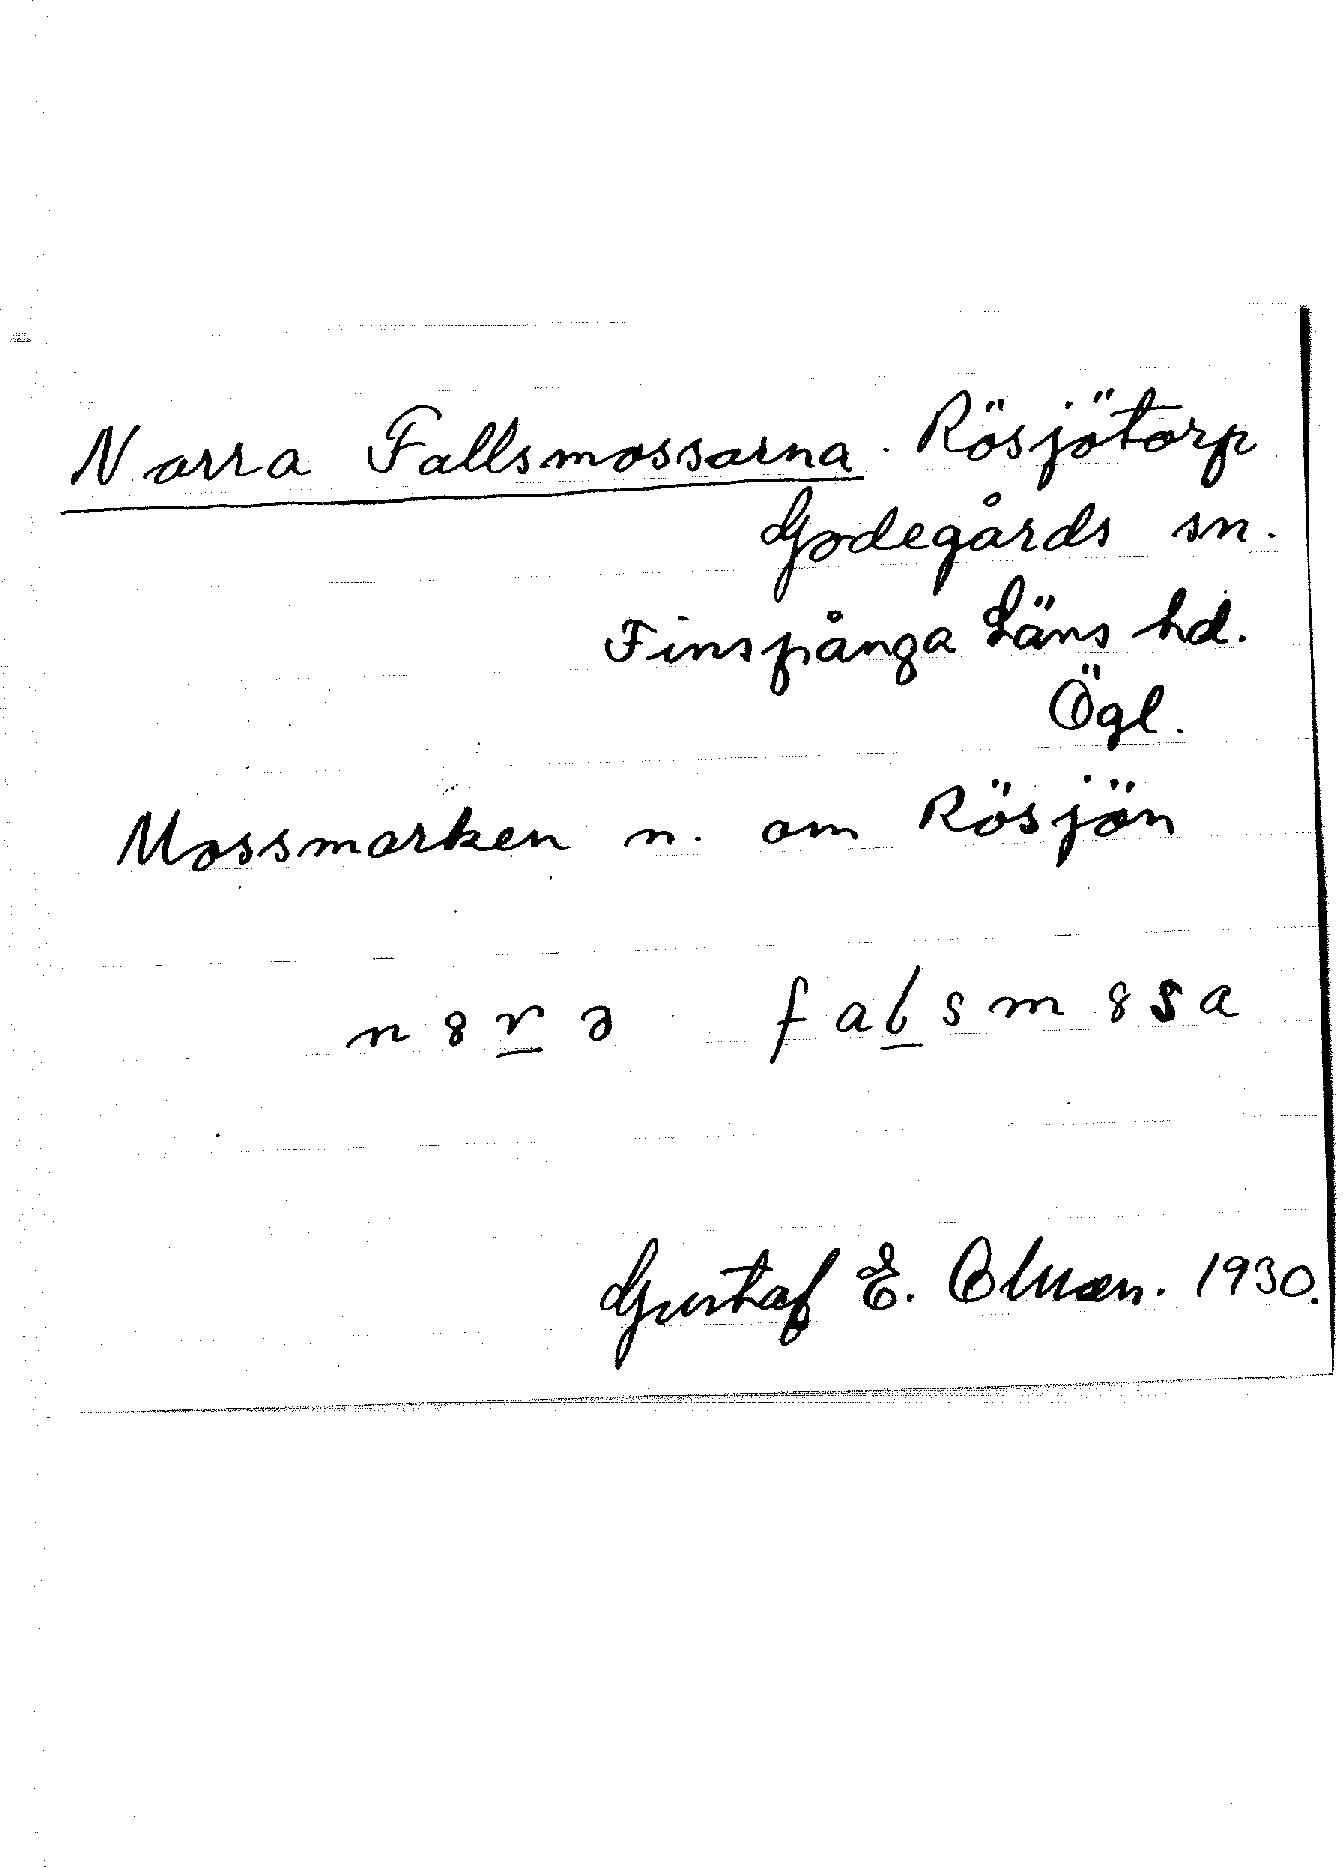 Norra Fallsmossarna. Rösjötorp
Godegårds sn.
Finspånga Läns hd.
Ögl.
Mossmarken n. om Rösjön
n8rə falsm8sa
Gustaf E. Olsson. 1930.